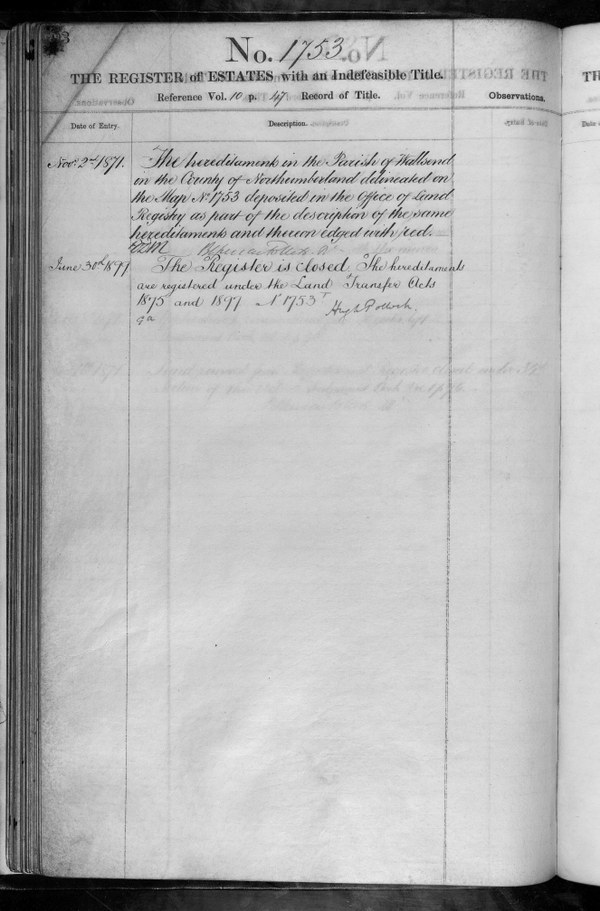 No. 1753
THE REGISTER of ESTATES with an Indefeasible Title.
Reference Vol. 10 p. 47 Record of Title.
Observations.
Date of Entry.
Description.
Novr. 2nd 1871.
The hereditaments in the Parish of Wallsend
in the County of Northumberland delineated on
the Map No. 1753 deposited in the Office of Land
Registry as part of the description of the same
hereditaments and thereon edged with red.
June 30th 1899
The Register is closed. The hereditaments
are registered under the Land Transfer Acts
1875 and 1897 No 1753
Hugh Pollock.